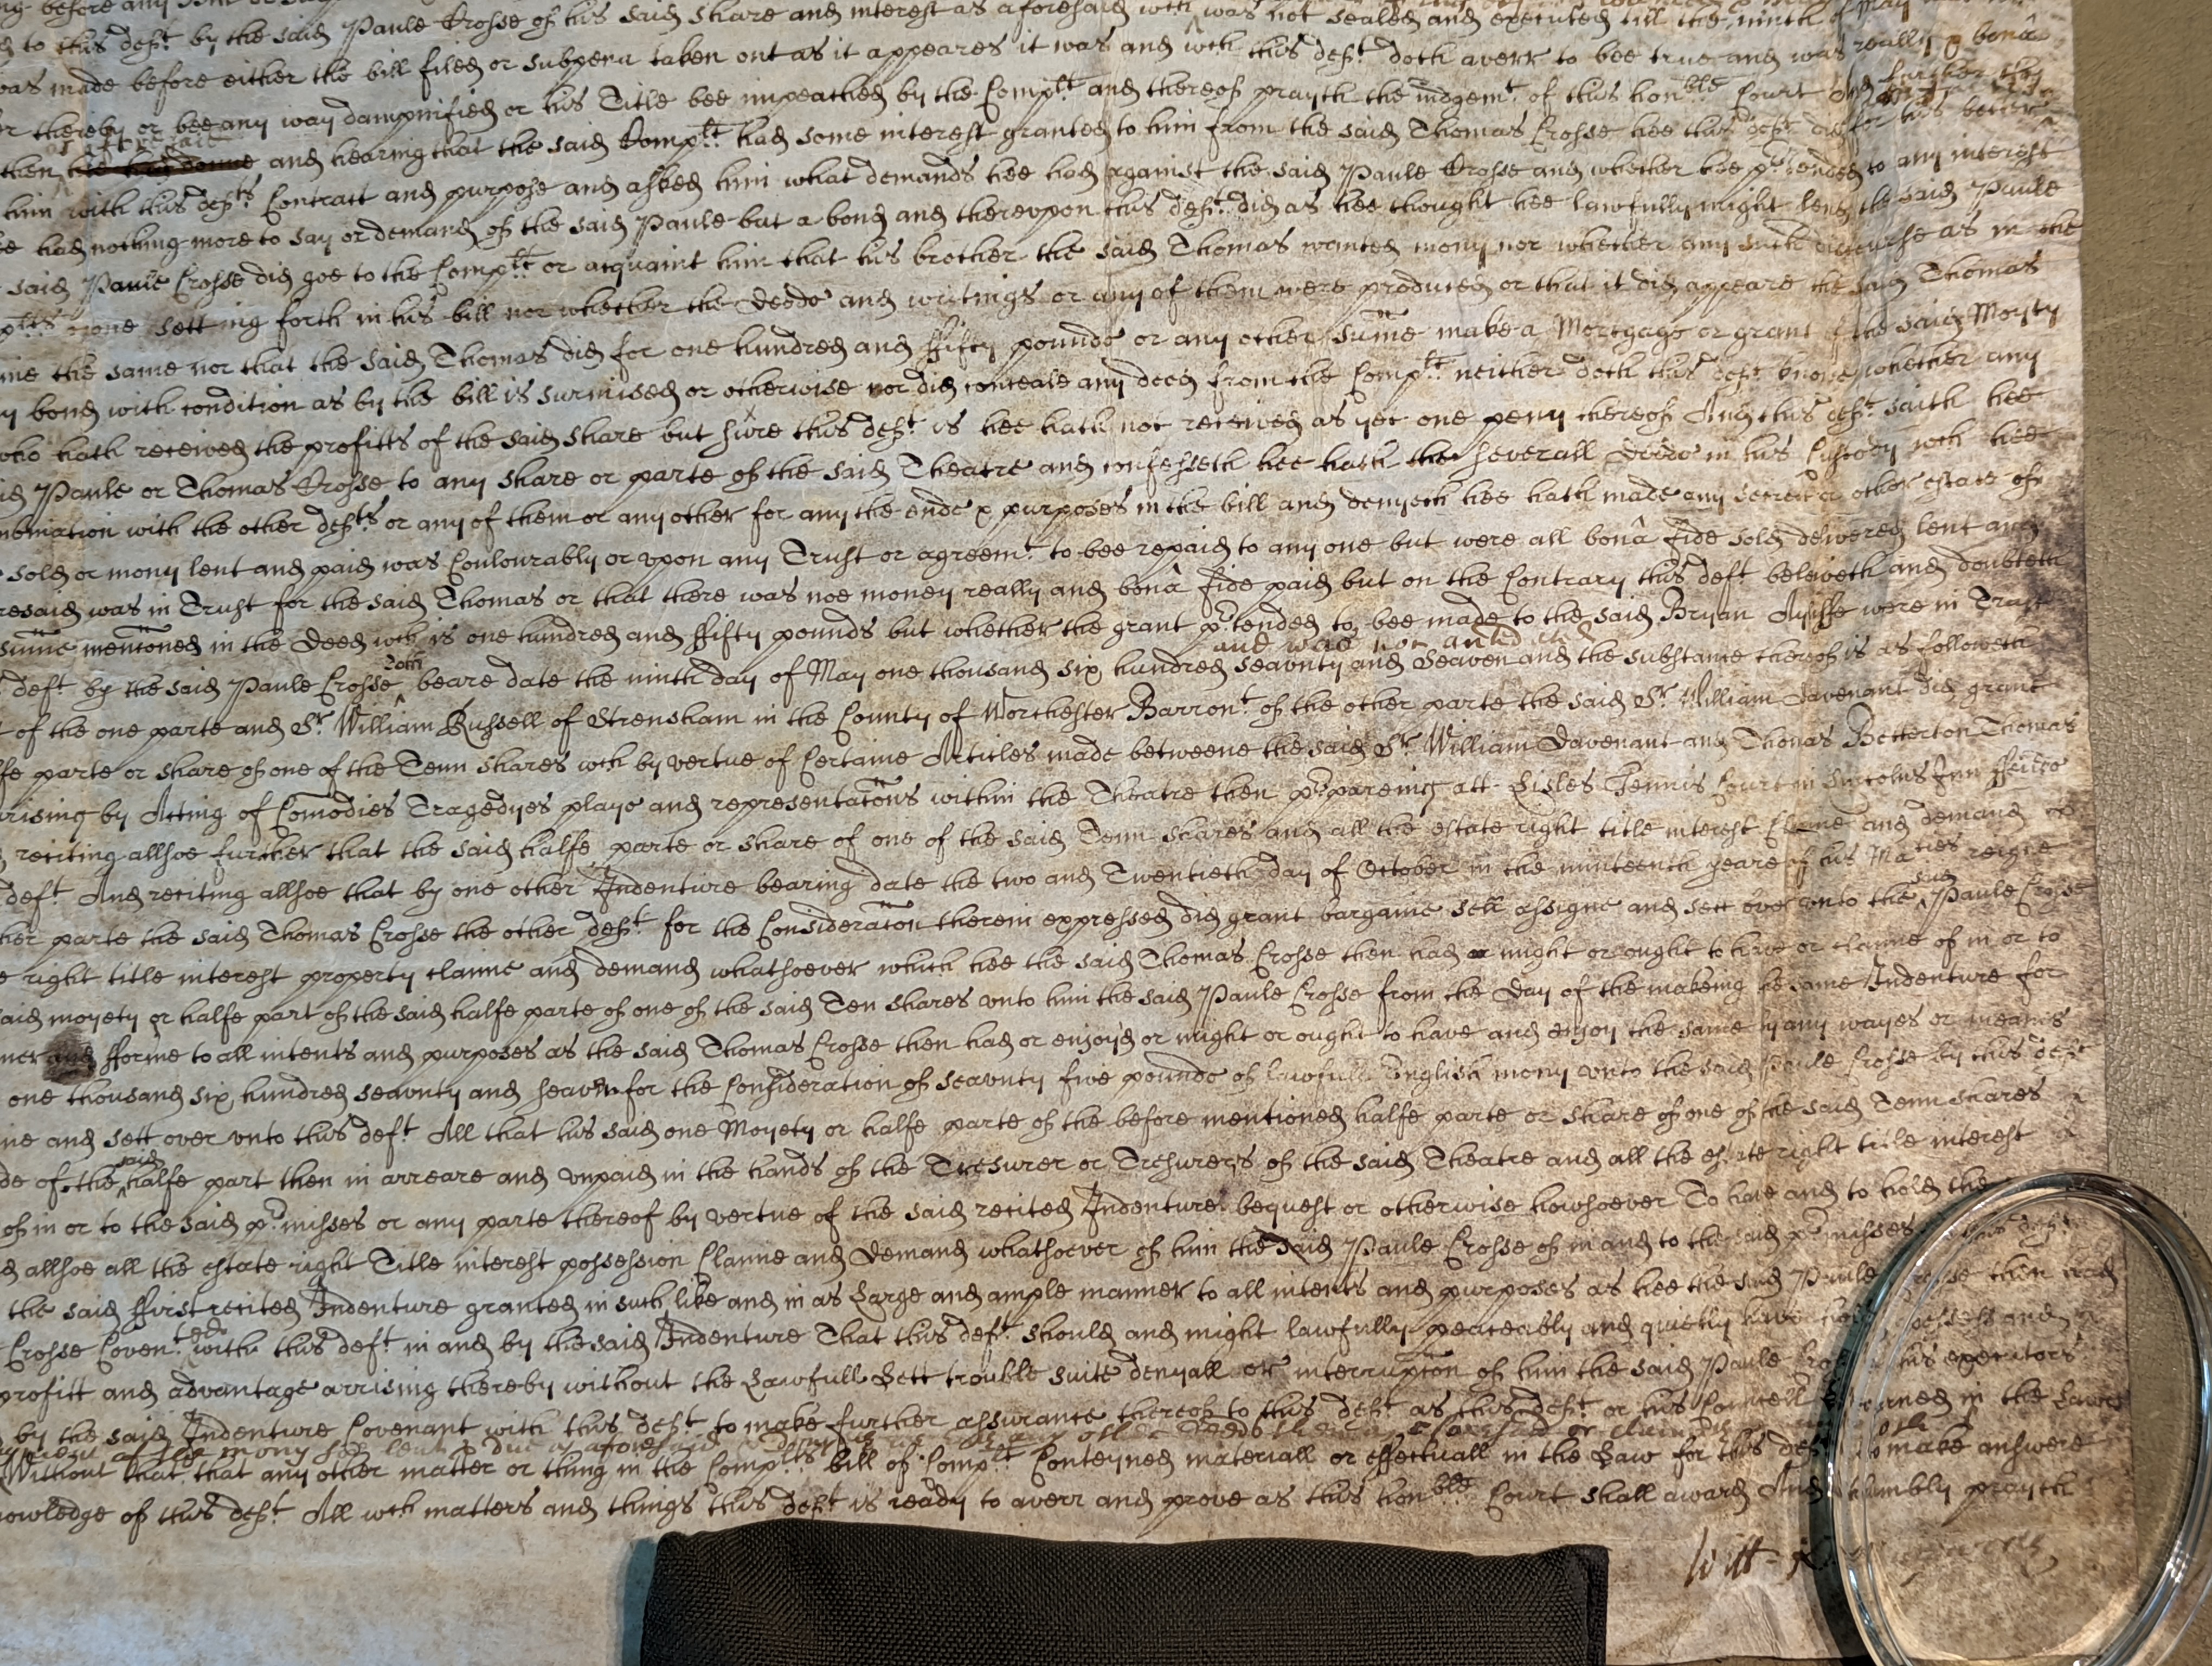 to this deft. by the said Paule Crosse of his said share and interest as aforesaid wch was not sealed and executed till the ninth of May
was made before either the bill filed or subpena taken out as it appeares it was and wch this deft. doth averr to bee true and was really & bonâ
thereby or bee any way dampnified or his Title bee impeached by the Complt. and thereof prayth the iudgemt. of this honble Court And further this
then as aforesaid and hearing that the said Complt. had some interest granted to him from the said Thomas Crosse hee this deft. did for his better
him with this defts Contract and purpose and asked him what demands hee had against the said Paule Crosse and whether hee prtended to any interest
had nothing more to say or demand of the said Paule but a bond and therevpon this deft. did as hee thought hee lawfully might lend the said Paule
said Paule Crosse did goe to the Complt. or acquaint him that his brother the said Thomas wanted mony nor whether any such discourse as in the
owne setting forth in his bill nor whether the deeds and writings or any of them were produced or that it did appeare the said Thomas
the same nor that the said Thomas did for one hundred and ffifty pounds or any other sume make a Mortgage or grant of the said Moyty
bond with condition as by the bill is surmised or otherwise nor did conceale any deed from the Complt. neither doth this deft. know whether any
who hath received the profitts of the said share but sure this deft. is hee hath not received as yet one peny thereof And this deft. saith hee
Paule or Thomas Crosse to any share or parte of the said Theatre and confesseth hee hath the severall deeds in his Custody wch hee
with the other defts or any of them or any other for any the ends & purposes in the bill and denyeth hee hath made any secret or other estate of
sold or mony lent and paid was Coulourably or vpon any Trust or agreemt. to bee repaid to any one but were all bonâ fide sold delivered lent and
was in Trust for the said Thomas or that there was noe money really and bonâ fide paid but on the Contrary this deft beleiveth and doubteth
sume mentoned in the deed wch is one hundred and ffifty pounds but whether the grant prtended to bee made to the said Bryan Ayliffe were in Trust
and was not
deft. by the said Paule Crosse doth beare date the ninth day of May one thousand six hundred seavnty and seaven and the substance thereof is as followeth
of the one parte and Sr. William Russell of Strensham in the County of Worchester Barront. of the other parte the said Sr. William Davenant did grant
parte or share of one of the Tenn shares wch by vertue of Certaine Articles made betweene the said Sr. William Davenant and Thomas Betterton Thomas
by Acting of Comodies Tragedyes playes and representatons within the Theatre then prpareing att Lisles Tennis Court in Lincolns Inn ffeilds
reciting allsoe further that the said halfe parte or share of one of the said Tenn shares and all the estate right title interest Clame and demand
deft. And reciting allsoe that by one other Indenture bearing date the two and Twentieth day of October in the ninteenth yeare of his Maties reigne
parte the said Thomas Crosse the other deft. for the Consideraton therein expressed did grant bargaine sell assigne and sett over vnto the said Paule Crosse
right title interest property clame and demand whatsoever which hee the said Thomas Crosse then had or might or ought to have or clame of in or to
said moyety or halfe part of the said halfe parte of one of the said Ten shares vnto him the said Paule Crosse from the day of the makeing the same Indenture for
and fforme to all intents and purposes as the said Thomas Crosse then had or enjoyd or might or ought to have and enjoy the same by any wayes or meanes
one thousand six hundred seavnty and seaven for the Consideration of seavnty five pounds of lawfull English mony vnto the said Paule Crosse by this deft
and sett over vnto this deft. All that his said one Moyety or halfe parte of the before mentioned halfe parte or share of one of the said Tenn shares
of the said halfe part then in arreare and vnpaid in the hands of the Tresurer or Tresurers of the said Theatre and all the estate right title interest
of in or to the said prmisses or any parte thereof by vertue of the said recited Indenture bequest or otherwise howsoever To have and to hold the
allsoe all the estate right Title interest possession Clame and demand whatsoever of him the said Paule Crosse of in and to the said prmisses this deft.
the said ffirst recited Indenture granted in such like and in as Large and ample manner to all intents and purposes as hee the said Paule Crosse then had
Crosse Covent. with this deft. in and by the said Indenture That this deft. should and might lawfully peaceably and quietly have possess and
profitt and advantage arrising thereby without the Lawfull Lett trouble suite denyall or interrupton of him the said Paule Crosse his executors
by the said Indenture Covenant with this deft. to make further assurance thereof to this deft. as this deft. or his Councell learned in the Lawes
mony soe lent & due as aforesaid
Without that that any other matter or thing in the Complts bill of Complt. Conteyned materiall or effectuall in the Law for this deft. to make answere
of this deft. All wch matters and things this deft. is ready to averr and prove as this honble Court shall award And humbly prayeth
Will